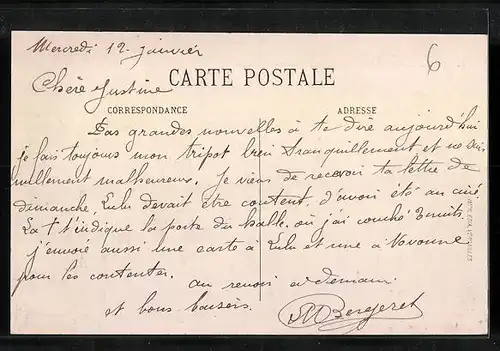 Mercredi 12. janvier
6
Chère Justine
CARTE POSTALE
CORRESPONDANCE
ADRESSE
Pas grandes nouvelles à te dire aujourd'hui
je fais toujours mon tripot bien tranquillement et ne suis
nullement malheureux. Je viens de recevoir ta lettre de
dimanche, Lulu devait être content d'avoir été au ciné.
La † t'indique la porte du hall où j'ai couché 3 nuits.
j'envoie aussi une carte à Lulu et une à Yvonne
pour les contenter.
au revoir à demain
et bons baisers.
MBergeret